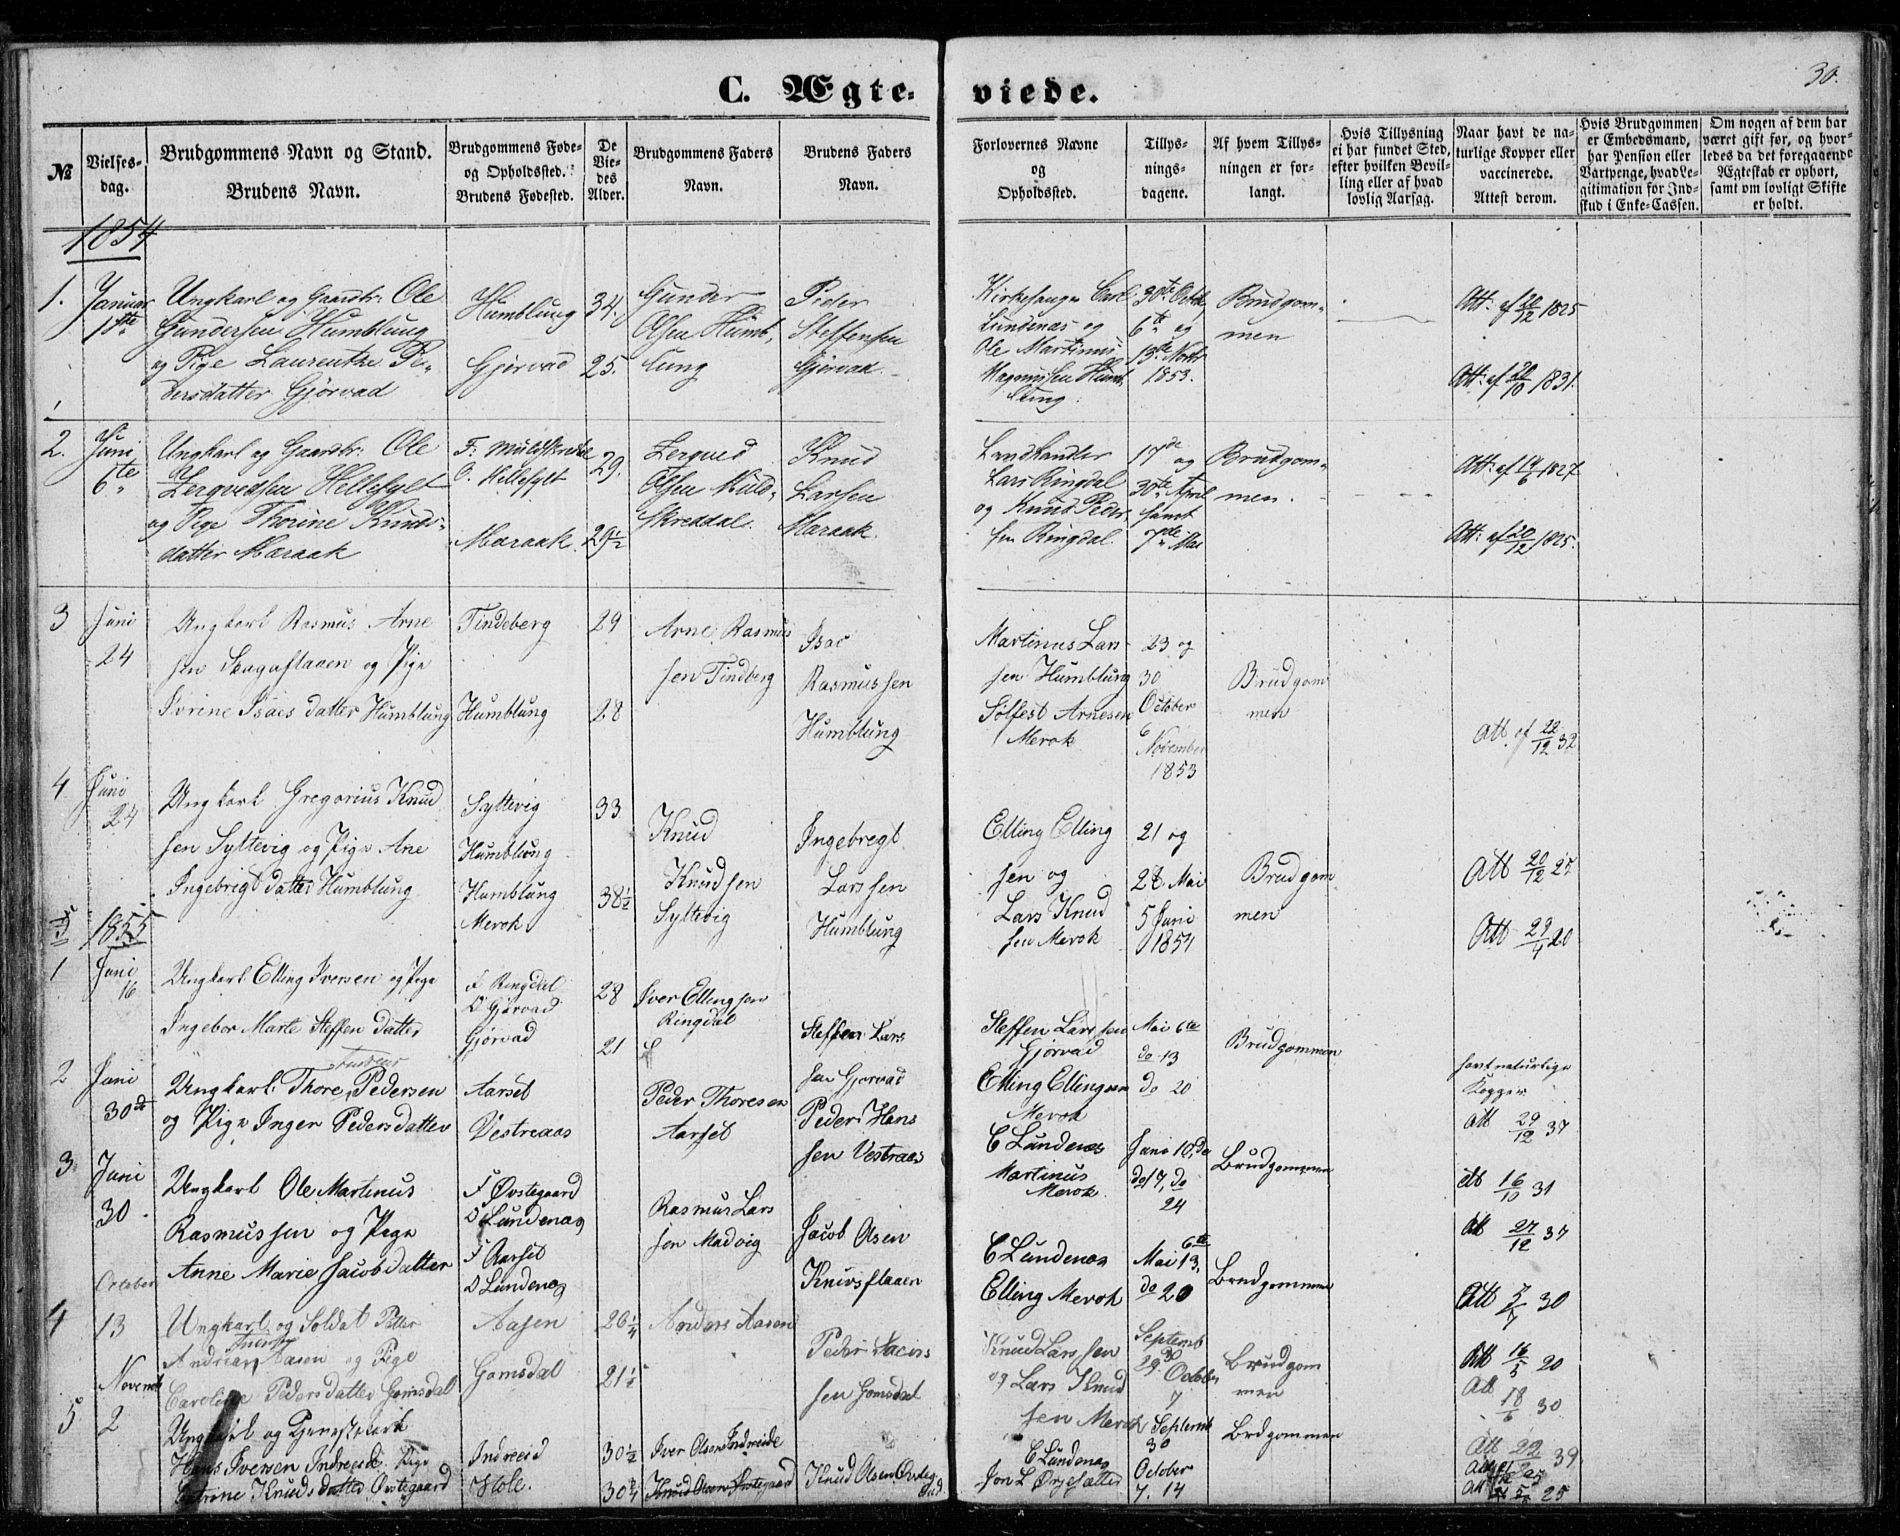 30.
C. Ægte- viede.
№
Vielses-
dag.
Brudgommens Navn og Stand.
Brudens Navn.
Brudgommens Føde-
og Opholdssted.
Brudens Fødested.
De
Vie-
des
Alder.
Brudgommens Faders
Navn.
Brudens Faders
Navn.
Forlovernes Navne
og
Opholdssted.
Tillys-
nings-
dagene.
Af hvem Tillys-
ningen er for-
langt.
Hvis Tillysning
ei har fundet Sted,
efter hvilken Bevil-
ling eller af hvad
lovlig Aarsag.
Naar havt de na-
turlige Kopper eller
vaccinerede.
Attest derom.
Hvis Brudgommen
er Embedsmand,
har Pension eller
Vartpenge, hvad Le-
gitimation for Ind-
skud i Enke-Cassen.
Om nogen af dem har
været gift før, og hvor-
ledes da det foregaaende
Ægteskab er ophørt,
samt om lovligt Skifte
er holdt.
1854
1.
Januar
1ste
Ungkarl og Gaardbr: Ole
Gundersen Humblung
og Pige Laurenthe Pe-
dersdatter Gjørvad
Humblung
Gjørvad
34.
25.
Gunder
Olsen Humb-
lung
Peder
Steffensen
Gjørvad.
Kirkesanger Carl
Lundenæs og
Ole Martinus
Magnusen Humb-
lung.
30te Octbr,
6te og
13de Novbr
1853.
Brudgom-
men
Att: af 26/12 1825
Att: af 20/10 1831.
2.
Juni
6te
Ungkarl og Gaardbr: Ole
Zerqvedsen Hellesylt
og Pige Thorine Knuds-
datter Maraak
F: Muldskreddal
O. Hellesylt
Maraak.
29.
29½
Zerqved
Olsen Muld-
skreddal.
Knud
Larsen
Maraak.
Landhandler
Lars Ringdal
og Knud Peder-
sen Ringdal.
17de og
30te April
samt
7de Mai
Brudgom-
men.
Att: af 19/6 1827
Att: af 20/12 1825.
3
Juni
24
Ungkarl Rasmus Arne
sen Skagaflaaen og Pige
Ivrine Isaks datter Humblung
Tindeberg
Humblung
29
28
Arne Rasmus
sen Tindberg
Isac
Rasmussen
Humblung
Martinus Lars
sen Humblung
Sølfest Arnesen
Merok
23 og
30
October
6
November
1853
Brudgom
men
Att. af 22/12 32
4
Juni
24
Ungkarl Gregorius Knud
sen Syltevig og Pige Ane
Ingebrigt datter Humblung
Syltevig
Humblung
Humblung
Merok
33
38½
Knud
Knudsen
Syltevig
Ingebregt
Larssen
Humblung
Elling Elling
sen og
Lars Knud
sen Merok
21 og
28 Mai
5 Juni
1854
Brudgom
men
Att 20/12 27
Att 29/4 20
5
1855
1
Juni
16
Ungkarl Elling Iversen og Pige
Ingebor Marte Steffen datter
F Ringdal
O Gjørvad
Gjørvad
28
21
Iver Ellingsen
Ringdal
Steffen Lars
sen Gjorvad
Steffen Larssen
Gjørvad
Elling Ellingsen
Merok
Mai 6te
do 13
do 20
Brudgommen
havt naturlige
Kopper
Att 29/12 37
2
Juni
30te
Ungkarl Thore Pedersen
og Pige Inger Pedersdatter
Aarset
Vestreaas
Peder Thoresen
Aarset
Peder Hans
sen Vestraas
C Lundenæs
Martinus
Merok
Juni 10, do
do 17, do
24
Brudgommen
Att 16/10 31
Att 27/12 37
3
Juni
30
Ungkarl Ole Martinus
Rasmussen og Pige
Anne Marie Jacobdatter
F Øvstegaard
O Lundenæs
F Aarset
O Lundenæs
Rasmus Lars
sen Madvig
Jacob Olsen
Knivsflaaen
C Lundenæs
Elling Merok
6te
Mai 13,
do 20
Brudgommen
Att 5/7 30
Att 16/5 20
4
October
13
Ungkarl og Soldat Peter
Andreas Aasen og Pige
Caroline Pedersdatter Gomsdal
Aasen
Gomsdal
26¼
21½
Anders Aasen
Peder Sacris
sen Gomsdal
Knud Larssen
og Lars Knud
sen Merok
Septemb
29 30 October
7
Brudgom
men
Att 18/6 30
5
Novemb
2
Ungkarl og Tjenestekarl
Hans Iversen Indreeid Pige
Catrine Knuds datter Øvstegaard
Indreeid
Hole.
30½
30¾
Iver Olsen Indreide
Knud Olsen Øvstegaard
Knud Olsen Øvsteg
C Lundenæs
Jon L Ørjesæter
Septemb
30
October
7. 14
Brdgommen
Att 22 39
Att 25